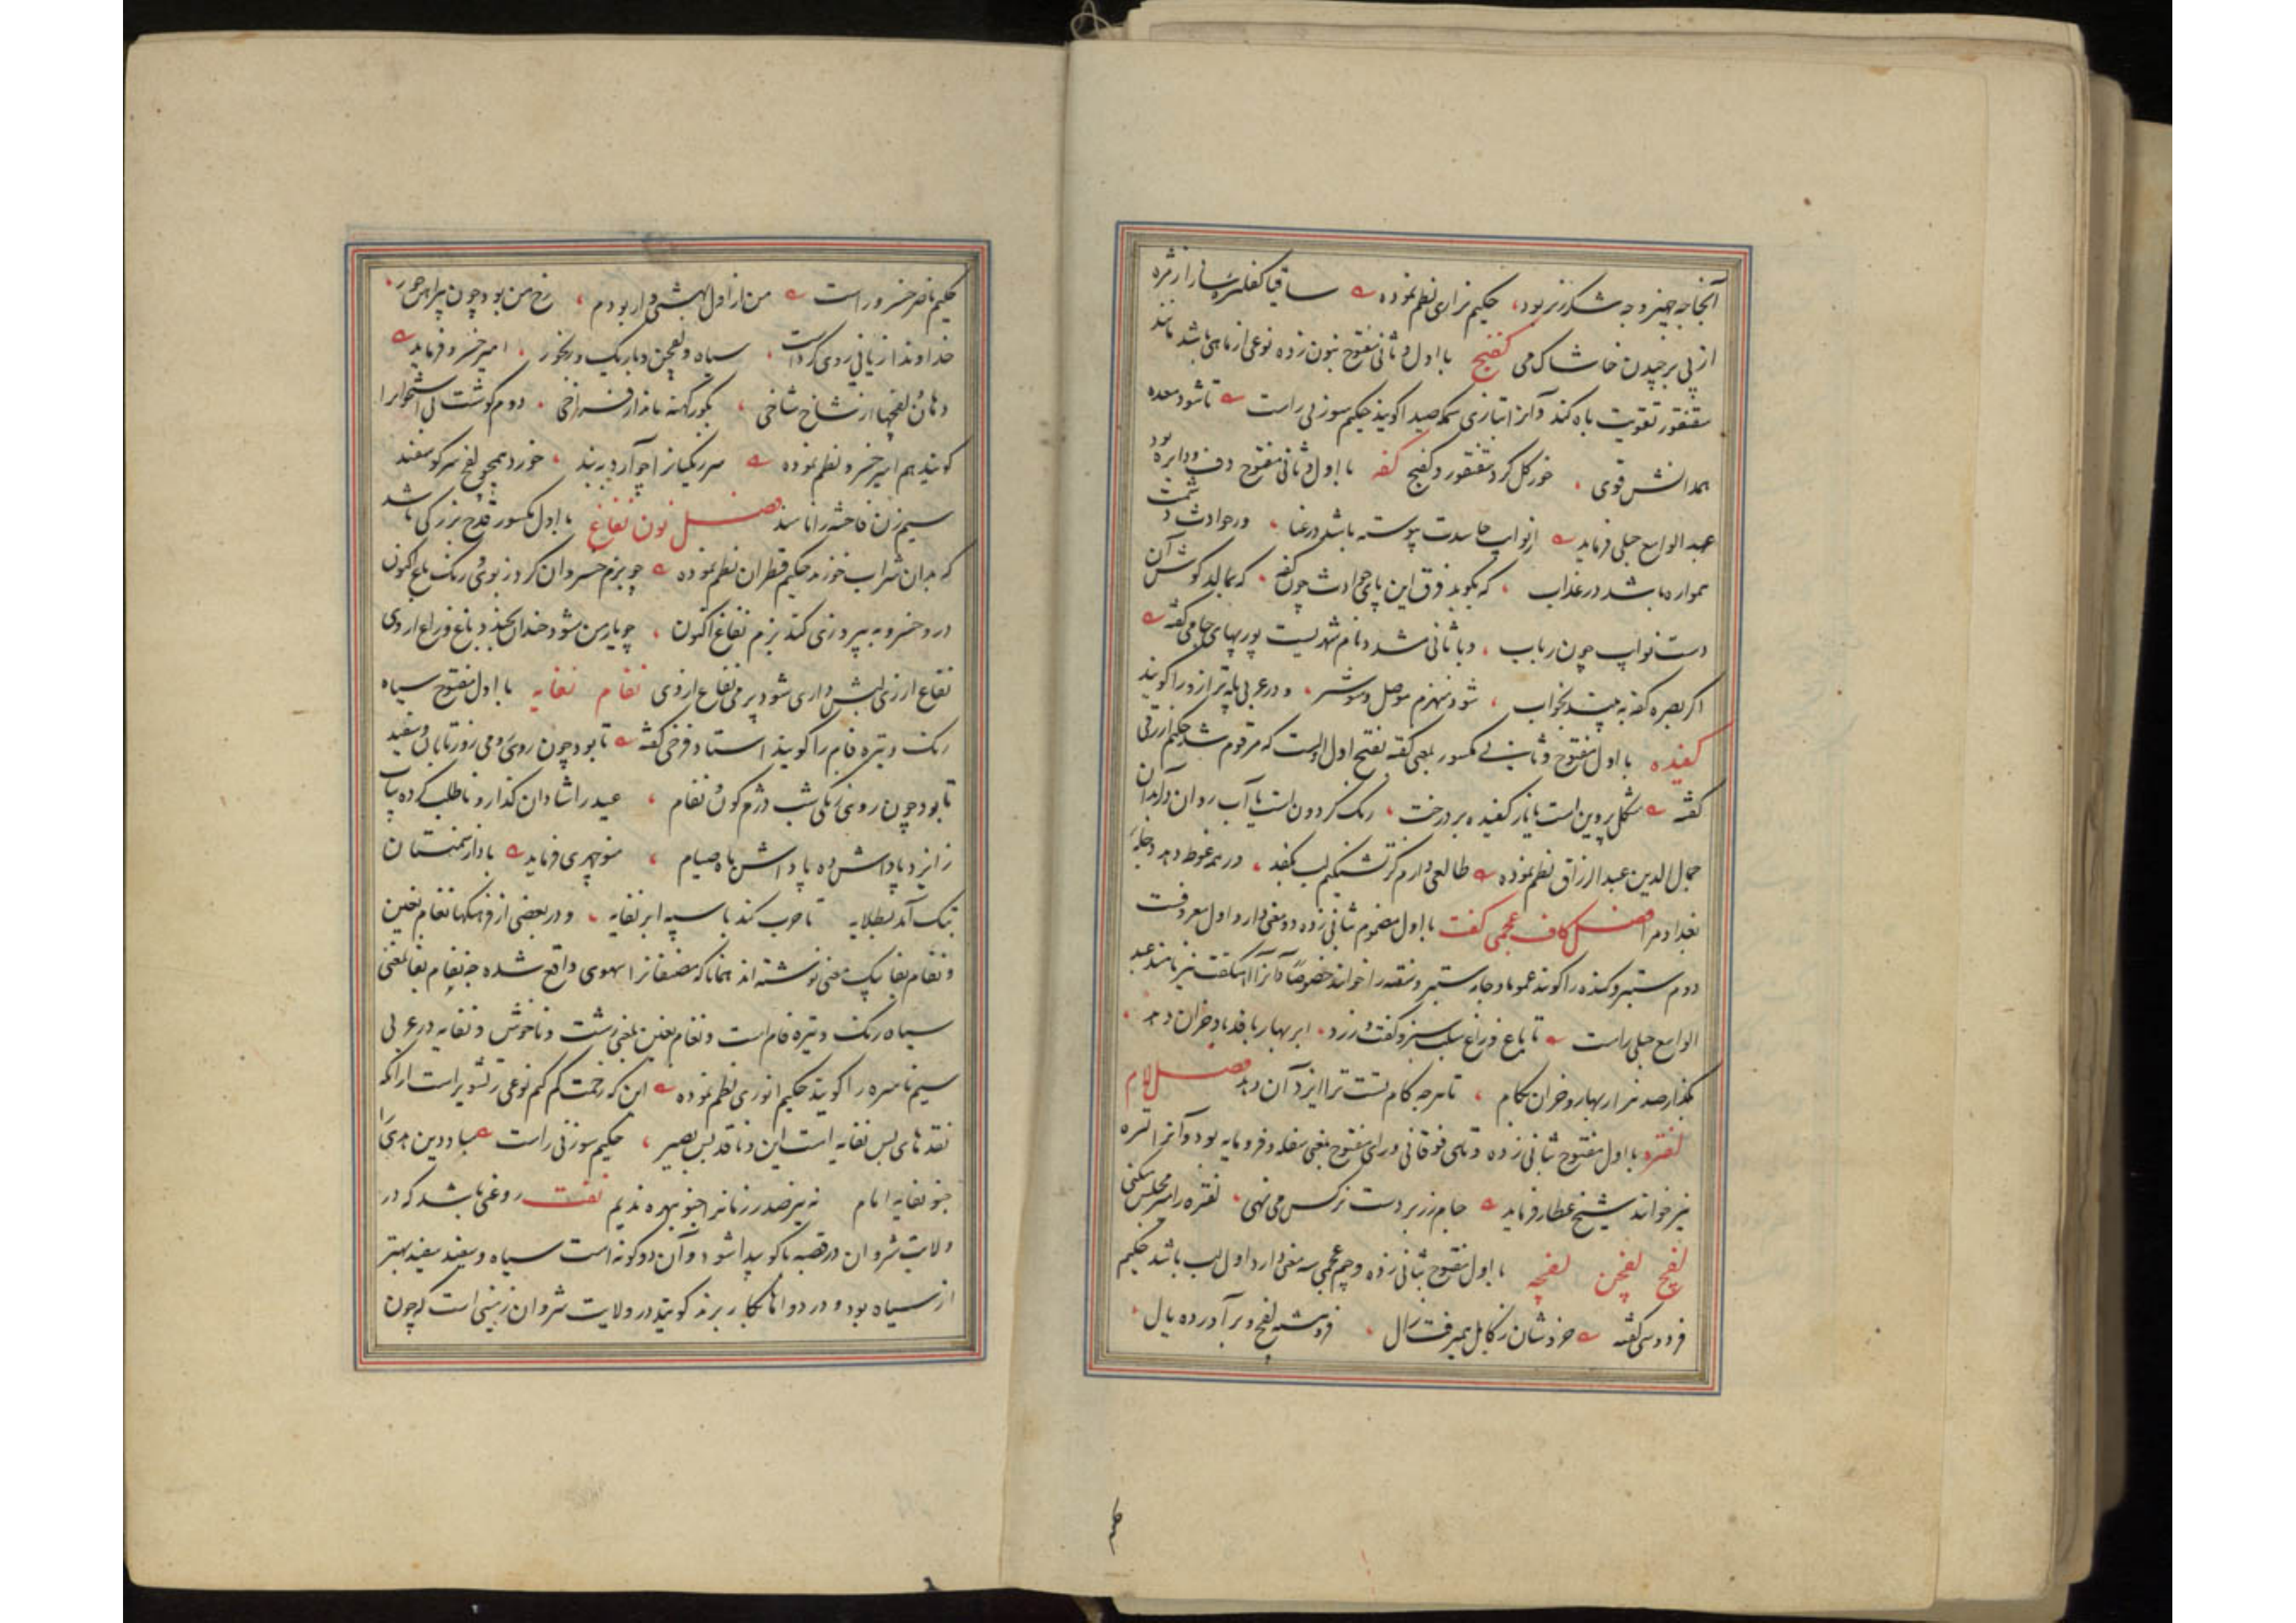 آنجا چه چیز و چه شکرریز بود، حکیم نزاری نظم نموده ساقیا کفلیزه ساز از مژه
از پی برچیدن خاشاک می کفنج با اول و ثانی مفتوح بنون زده نوعی از ماهی باشد مانند
سقنقور تقویت باه کند و آنرا بتازی سمکه صیدا گویند حکیم سوزنی راست تا شود معده
همدانش قوی خورکل کرد سقنقور و کفنج کفه با اول و ثانی مفتوح دف و دایره بود
عبد الواسع جبلی فرماید از نوایب حاسدت پیوسته باشد در عنا ور حوادث دشمنت
همواره باشد در عذاب که بکوبد فرق این پای حوادث چون کفه که بمالد گوش آن
دست نوایب چون رباب و با ثانی مشدد نام شهریست پوربهای جامی گفته
اگر بصره کفه به بیند بخواب شود منهزم موصل و شوشتر و در عربی پله ترازو را گویند
کفیده با اول مفتوح و ثانی مکسور بمعنی کفته بفتح اول است که مرقوم شد حکیم ازرقی
گفته شکل پروین است یا نار کفیده بر درخت رنگ گردون است یا آب روان در آبدان
جمال الدین عبد الرزاق نظم نموده طالعی دارم کز تشنگیم لب بکفد ور همه غوطه دهد دجله
بغداد مرا فصل کاف عجمی گفت با اول مضموم ثانی زده دو معنی دارد اول معروفست
دوم ستبر و گنده را گویند عموما و جامه ستبر و سفته را خوانند خصوصاً و آنرا هنگفت نیز نامند عبد
الواسع جبلی راست تا باغ و راغ سلب سبز و گفت و زرد ابر بهار بافد و باد خزان دهد
بگذار صد هزار بهار و خزان بکام تا هر چه کام تست ترا ایزد آن دهد فصل لام
لفتره با اول مفتوح ثانی زده و تای فوقانی و رای مفتوح بمعنی سفله و فرومایه بود و آنرا لتره
نیز خوانند شیخ عطار فرماید جام زر بر دست نرگس می نهی لفتره را میر مجلس میکنی
لفج لفجن لفچه با اول مفتوح ثانی زده و جیم عجمی سه معنی دارد اول لب باشد حکیم
فردوسی گفته خروشان ز کابل همیرفت زال فروهشته لفج و برآورده یال
حکیم
حکیم ناصر خسرو راست من از اول بهشتی وار بودم رخ من بود چون پیراهن حور
خداوندا زبانی روی کرد است سیاه و لفجن و باریک و رنجور امیر خسرو فرماید
دهان لفجنها از شاخ شاخی بگور کهنه ماند از فراخی دوم گوشت بی استخوان را
گویند هم امیر خسرو نظم نموده سر زنگیان را چو آرد ببند خورد همچو لفج سر گوسفند
سیم زن فاحشه را نامند فصل نون نفاغ با اول مکسور قدح بزرگی باشد
که بدان شراب خورند حکیم قطران نظم نموده چو بزم خسروان کرد ز بوی و رنگ باغ اکنون
درو خسرو به پیروزی کند بزم نفاغ اکنون چو یار من شود خندان بخندد باغ و راغ از وی
نفاغ ار زی لبش داری شود پر می نفاغ از وی نفام نفایه با اول مفتوح سیاه
رنگ و تیره فام را گویند استاد فرخی گفته تا بود چون روی رومی روز تابان و سفید
تا بود چون روی زنگی شب دژم گون و نفام عید را شادان گذار و ناطلب کرده بیاب
ز ایزد پاداش ده پاداش ماه صیام منوچهری فرماید باد از سمنستان
بتک آمد بطلایه تا حرب کند با سپه ابر نفایه و در بعضی از فرهنگها نفام بغین
و نفام بفا بیک معنی نوشته اند همانا که مصنفانرا سهوی واقع شده چه نفام بفا بمعنی
سیاه رنگ و تیره فام است و نغام بغین بمعنی زشت و ناخوش و نفایه در عربی
سیم ناسره را گویند حکیم انوری نظم نموده این که زحمت کم کنم نوعی ز تشویر است از آنکه
نقدهای بس نفایه است این و ناقد بس بصیر حکیم سوزنی راست مبادا دین هدی را
چنو نفایه امام نه نیز صدر زمانرا چنو بهره ندیم نفت روغنی باشد که در
ولایت شروان در قصبه باکو پیدا شود و آن دو گونه است سیاه و سفید سفید بهتر
از سیاه بود و در دواها بکار برند گویند در ولایت شروان زمینی است که چون